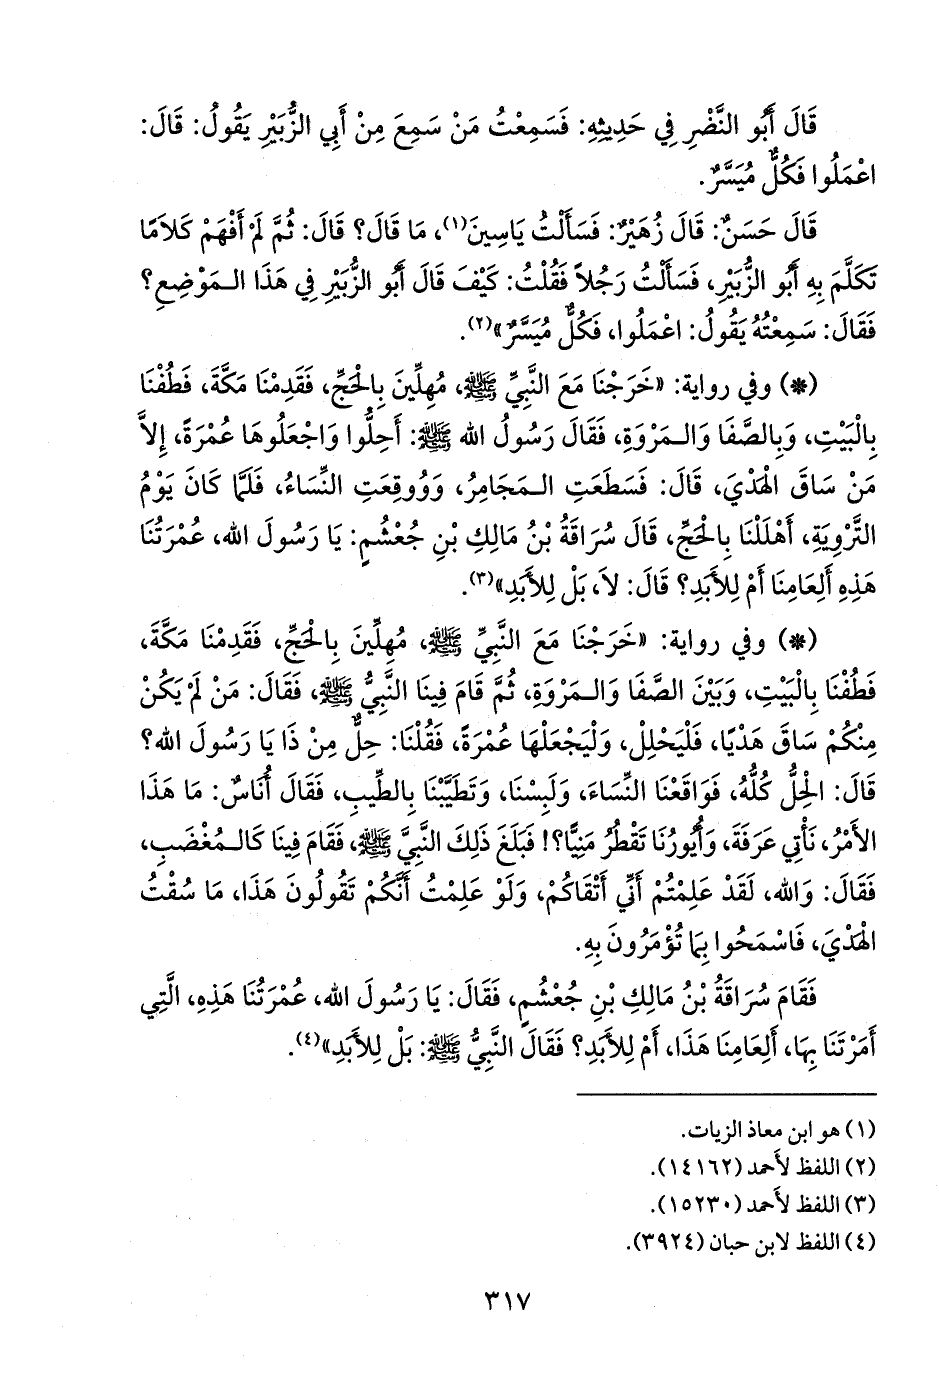 قَالَ أَبُو النَّضْرِ فِي حَدِيثِهِ: فَسَمِعْتُ مَنْ سَمِعَ مِنْ أَبِي الزُّبَيْرِ يَقُولُ: قَالَ:
اعْمَلُوا فَكُلٌّ مُيَسَّرٌ.
قَالَ حَسَنٌ: قَالَ زُهَيْرٌ: فَسَأَلْتُ يَاسِينَ(١)، مَا قَالَ؟ قَالَ: ثُمَّ لَمْ أَفْهَمْ كَلَامًا
تَكَلَّمَ بِهِ أَبُو الزُّبَيْرِ، فَسَأَلْتُ رَجُلاً فَقُلْتُ: كَيْفَ قَالَ أَبُو الزُّبَيْرِ فِي هَذَا الـمَوْضِعِ؟
فَقَالَ: سَمِعْتُهُ يَقُولُ: اعْمَلُوا، فَكُلٌّ مُيَسَّرٌ»(٢).
(*) وفي رواية: «خَرَجْنَا مَعَ النَّبِيِّ ﷺ، مُهِلِّينَ بِالْحَجِّ، فَقَدِمْنَا مَكَّةَ، فَطُفْنَا
بِالْبَيْتِ، وَبِالصَّفَا وَالـمَرْوَةِ، فَقَالَ رَسُولُ الله ﷺ: أَحِلُّوا وَاجْعَلُوهَا عُمْرَةً، إِلاَّ
مَنْ سَاقَ الْهَدْيَ، قَالَ: فَسَطَعَتِ الـمَجَامِرُ، وَوُوقِعَتِ النِّسَاءُ، فَلَمَّا كَانَ يَوْمُ
التَّرْوِيَةِ، أَهْلَلْنَا بِالْحَجِّ، قَالَ سُرَاقَةُ بْنُ مَالِكِ بْنِ جُعْشُمٍ: يَا رَسُولَ الله، عُمْرَتُنَا
هَذِهِ أَلِعَامِنَا أَمْ لِلأَبَدِ؟ قَالَ: لاَ، بَلْ لِلأَبَدِ»(٣).
(*) وفي رواية: «خَرَجْنَا مَعَ النَّبِيِّ ﷺ، مُهِلِّينَ بِالْحَجِّ، فَقَدِمْنَا مَكَّةَ،
فَطُفْنَا بِالْبَيْتِ، وَبَيْنَ الصَّفَا وَالـمَرْوَةِ، ثُمَّ قَامَ فِينَا النَّبِيُّ ﷺ، فَقَالَ: مَنْ لَمْ يَكُنْ
مِنْكُمْ سَاقَ هَدْيًا، فَلْيَحْلِلْ، وَلْيَجْعَلْهَا عُمْرَةً، فَقُلْنَا: حِلٌّ مِنْ ذَا يَا رَسُولَ الله؟
قَالَ: الْحِلُّ كُلُّهُ، فَوَاقَعْنَا النِّسَاءَ، وَلَبِسْنَا، وَتَطَيَّبْنَا بِالطِّيبِ، فَقَالَ أُنَاسٌ: مَا هَذَا
الأَمْرُ، نَأْتِي عَرَفَةَ، وَأُيُورُنَا تَقْطُرُ مَنِيًّا؟! فَبَلَغَ ذَلِكَ النَّبِيَّ ﷺ، فَقَامَ فِينَا كَالـمُغْضَبِ،
فَقَالَ: وَالله، لَقَدْ عَلِمْتُمْ أَنِّي أَتْقَاكُمْ، وَلَوْ عَلِمْتُ أَنَّكُمْ تَقُولُونَ هَذَا، مَا سُقْتُ
الْهَدْيَ، فَاسْمَحُوا بِمَا تُؤْمَرُونَ بِهِ.
فَقَامَ سُرَاقَةُ بْنُ مَالِكِ بْنِ جُعْشُمٍ، فَقَالَ: يَا رَسُولَ الله، عُمْرَتُنَا هَذِهِ، الَّتِي
أَمَرْتَنَا بِهَا، أَلِعَامِنَا هَذَا، أَمْ لِلأَبَدِ؟ فَقَالَ النَّبِيُّ ﷺ: بَلْ لِلأَبَدِ»(٤).
(١) هو ابن معاذ الزيات.
(٢) اللفظ لأَحمد (١٤١٦٢).
(٣) اللفظ لأَحمد (١٥٢٣٠).
(٤) اللفظ لابن حبان (٣٩٢٤).
٣١٧